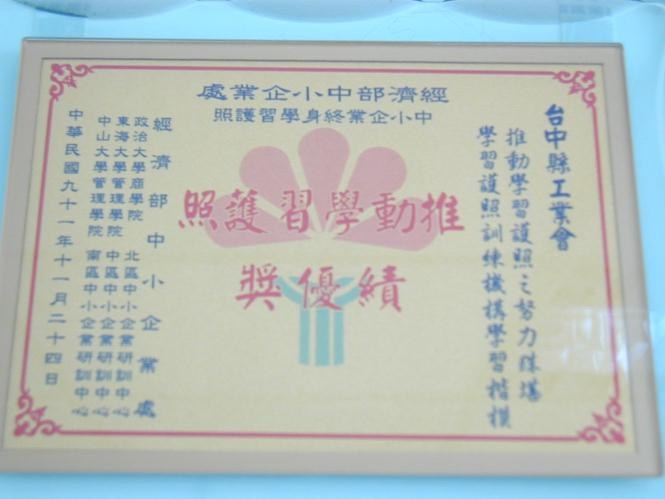 經濟部中小企業處
中小企業終身學習護照
台中縣工業會
推動學習護照之努力殊堪
學習護照訓練機構學習楷模
推動學習護照
績優獎
經濟部中小企業處
政治大學商學院 北區中小企業研訓中心
東海大學管理學院 中區中小企業研訓中心
中山大學管理學院 南區中小企業研訓中心
中華民國九十一年十一月二十四日